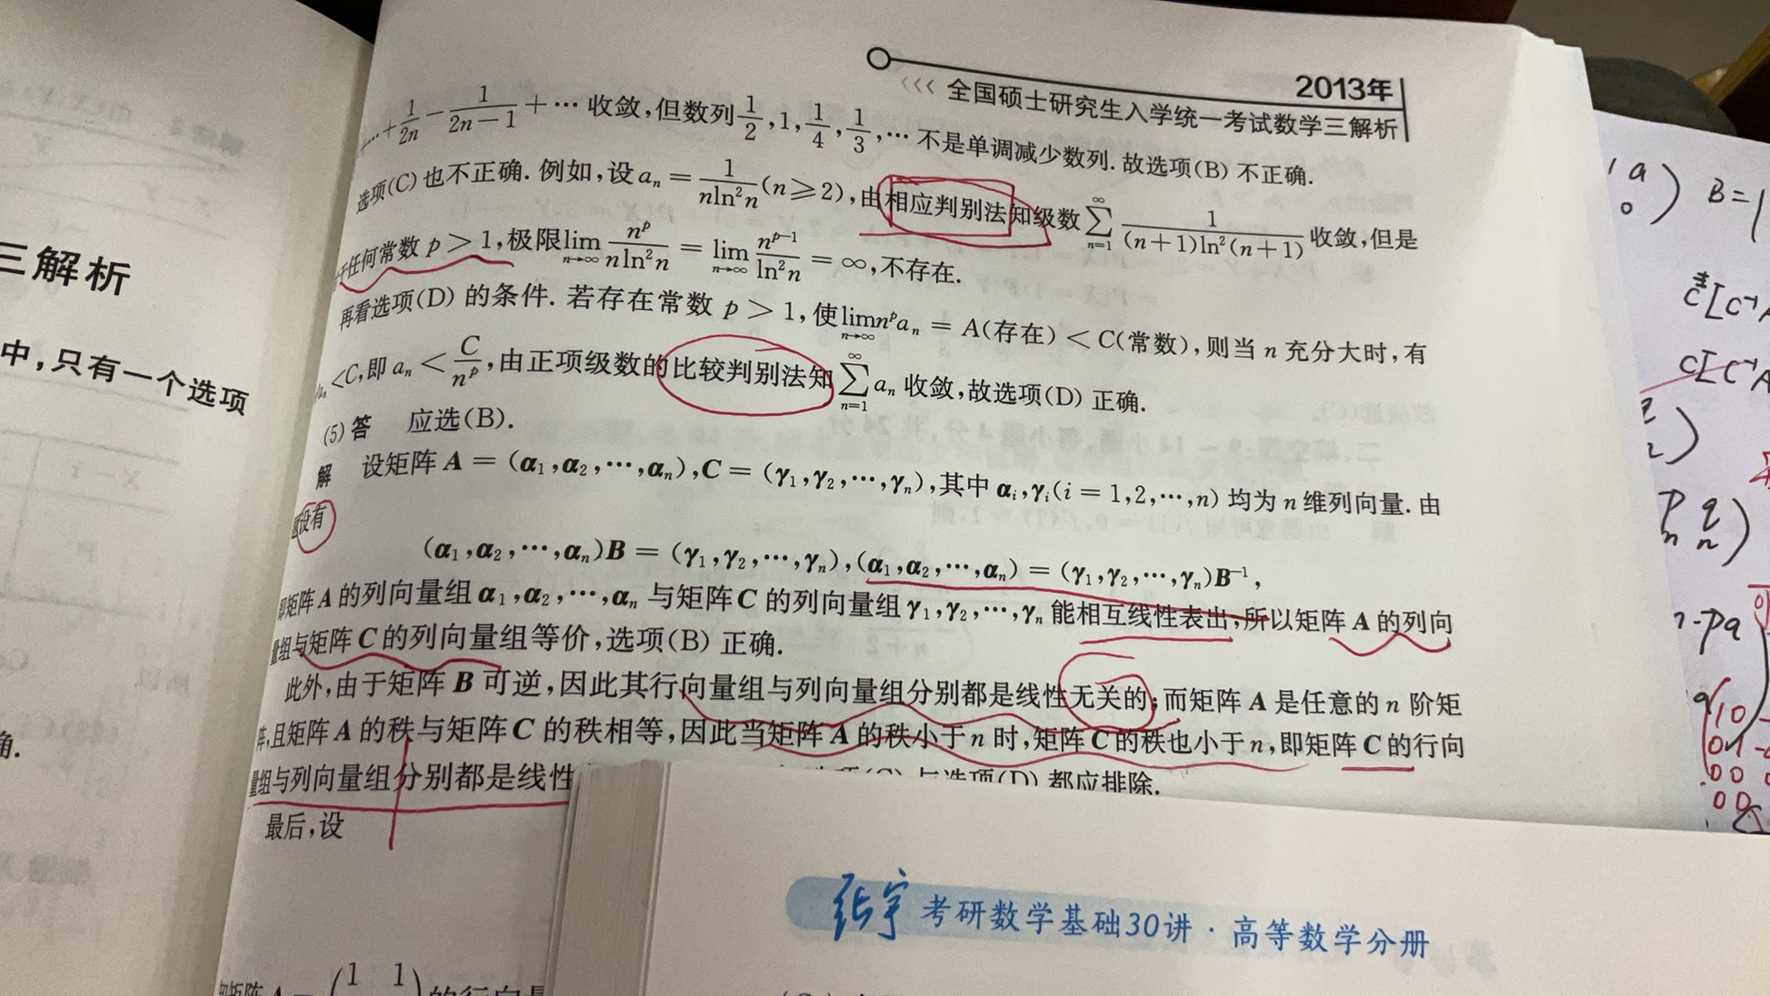 2013年
<<< 全国硕士研究生入学统一考试数学三解析
…+1/2n − 1/(2n−1) + … 收敛,但数列1/2,1,1/4,1/3,… 不是单调减少数列.故选项(B) 不正确.
选项(C) 也不正确. 例如,设 aₙ = 1/(nln²n) (n ≥ 2),由相应判别法知级数 ∑_{n=1}^{∞} 1/((n+1)ln²(n+1)) 收敛,但是
于任何常数 p > 1,极限 lim_{n→∞} nᵖ/(nln²n) = lim_{n→∞} nᵖ⁻¹/ln²n = ∞,不存在.
再看选项(D) 的条件. 若存在常数 p > 1,使 lim_{n→∞} nᵖaₙ = A(存在) < C(常数),则当 n 充分大时,有
aₙ < C,即 aₙ < C/nᵖ,由正项级数的比较判别法知 ∑_{n=1}^{∞} aₙ 收敛,故选项(D) 正确.
(5) 答 应选(B).
解 设矩阵 A = (α₁,α₂,…,αₙ),C = (γ₁,γ₂,…,γₙ),其中 αᵢ,γᵢ(i = 1,2,…,n) 均为 n 维列向量. 由
设有
(α₁,α₂,…,αₙ)B = (γ₁,γ₂,…,γₙ),(α₁,α₂,…,αₙ) = (γ₁,γ₂,…,γₙ)B⁻¹,
即矩阵 A 的列向量组 α₁,α₂,…,αₙ 与矩阵 C 的列向量组 γ₁,γ₂,…,γₙ 能相互线性表出,所以矩阵 A 的列向
量组与矩阵 C 的列向量组等价,选项(B) 正确.
此外,由于矩阵 B 可逆,因此其行向量组与列向量组分别都是线性无关的;而矩阵 A 是任意的 n 阶矩
阵,且矩阵 A 的秩与矩阵 C 的秩相等,因此当矩阵 A 的秩小于 n 时,矩阵 C 的秩也小于 n,即矩阵 C 的行向
量组与列向量组分别都是线性 (C) 与选项(D) 都应排除.
最后,设
矩阵 A = (1 1) 的行向量
三解析
中,只有一个选项
确.
张宇 考研数学基础30讲 · 高等数学分册
B =
C[C⁻¹A
n-pa